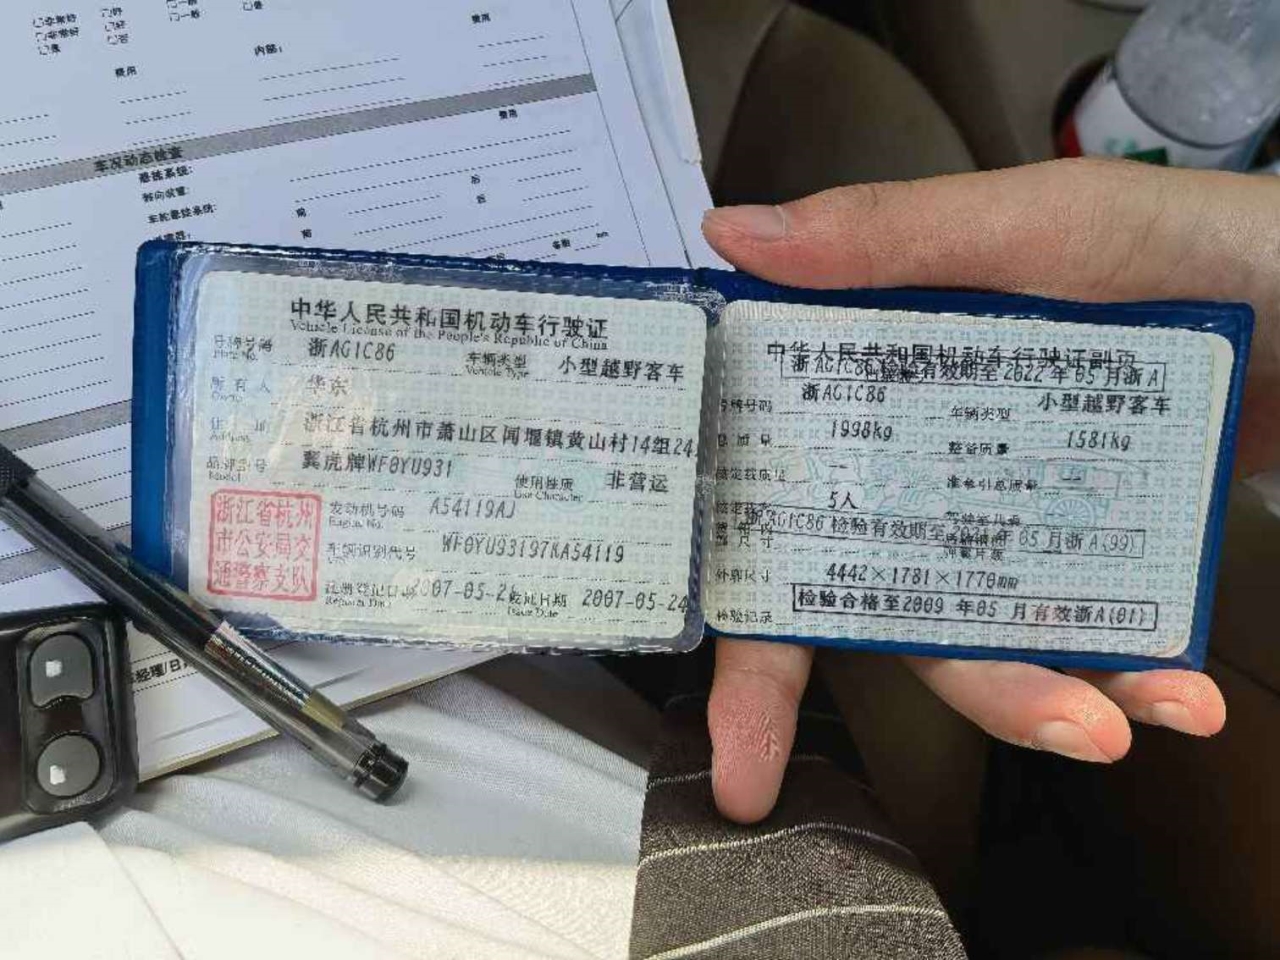 费用
内部：
费用
费用
车况动态检查
悬挂系统:
转向装置:
车轮悬挂系统:
前
后
前
后
中华人民共和国机动车行驶证
Vehicle License of the People's Republic of China
号牌号码 浙AG1C86 车辆类型 小型越野客车
Plate No. Vehicle Type
所有人 华东
Owner
住址 浙江省杭州市萧山区闻堰镇黄山村14组24
Address
品牌型号 翼虎牌WF0YU931 使用性质 非营运
Model Use Character
浙江省杭州
市公安局交
通警察支队
发动机号码 A54119AJ
Engine No.
车辆识别代号 WF0YU93197KA54119
注册登记日期 2007-05-24 发证日期 2007-05-24
Register Date Issue Date
中华人民共和国机动车行驶证副页
浙AG1C86 检验有效期至2022年05月浙A
号牌号码 浙AG1C86 车辆类型 小型越野客车
总质量 1998kg 整备质量 1581kg
核定载质量 — 准牵引总质量 —
5人
浙AG1C86 检验有效期至 年05月浙A(99)
外廓尺寸 4442×1781×1770mm
检验记录 检验合格至2009年05月有效浙A(01)
经理/日